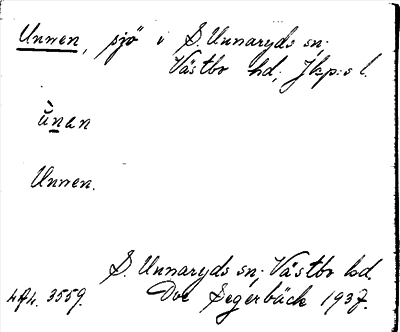 Unnen, sjö i S. Unnaryds sn;
Västbo hd; Jkp:s l.
ùnan
Unnen.
S. Unnaryds sn; Västbo hd.
3559. Dor Segerbäck 1937.